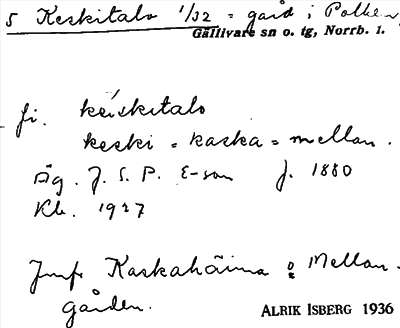 5 Keskitalo 1/32 = gård i Polken,
Gällivare sn o. tg, Norrb. l.
fi. ke̍skitalo
keski = kaska = mellan.
Äg. J. S. P. E-son f. 1880
Kl. 1927
Jmf. Kaskahäima o: Mellan-
gården.
ALRIK ISBERG 1936